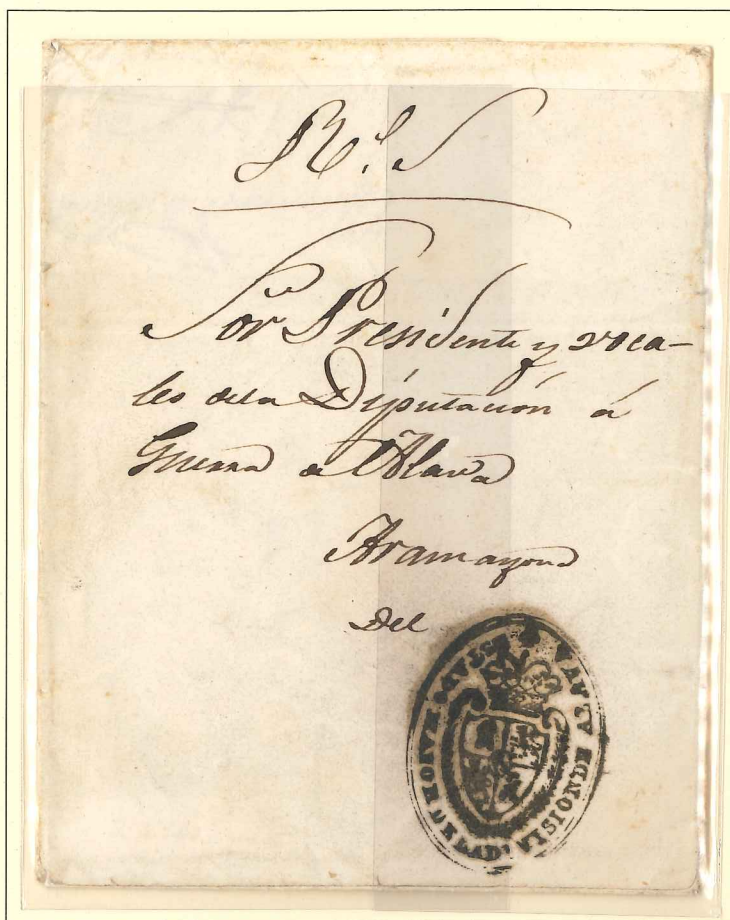 Rl. S
Sor Presidente y voca-
les dela Diputación á
Guerra de Alava
Aramayona
Del
ESTADO MAYOR DE LA DIVISION DE ALAVA